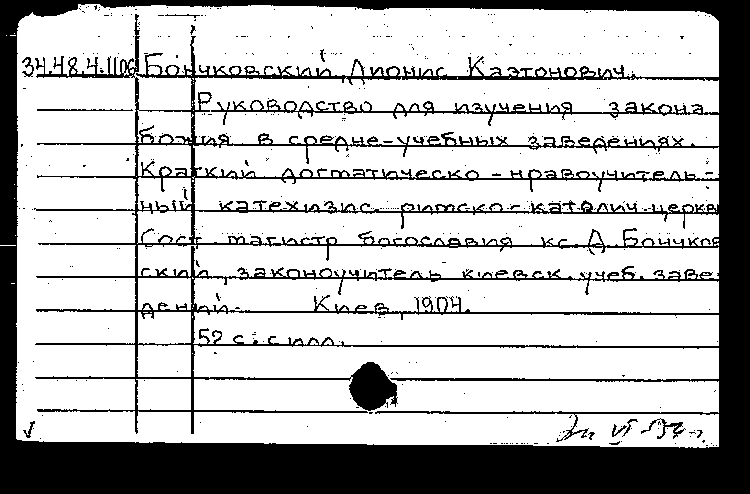 34.48.4.1106 Бончковский, Дионис Каэтонович.
Руководство для изучения закона
божия в средне-учебных заведениях.
Краткий догматическо-нравоучитель-
ный катехизис. римско-католич. церкв
Сост. магистр богославия кс. Д. Бончков
ский, законоучитель киевск. учеб. заве-
дений. Киев, 1904.
52 с. с илл.